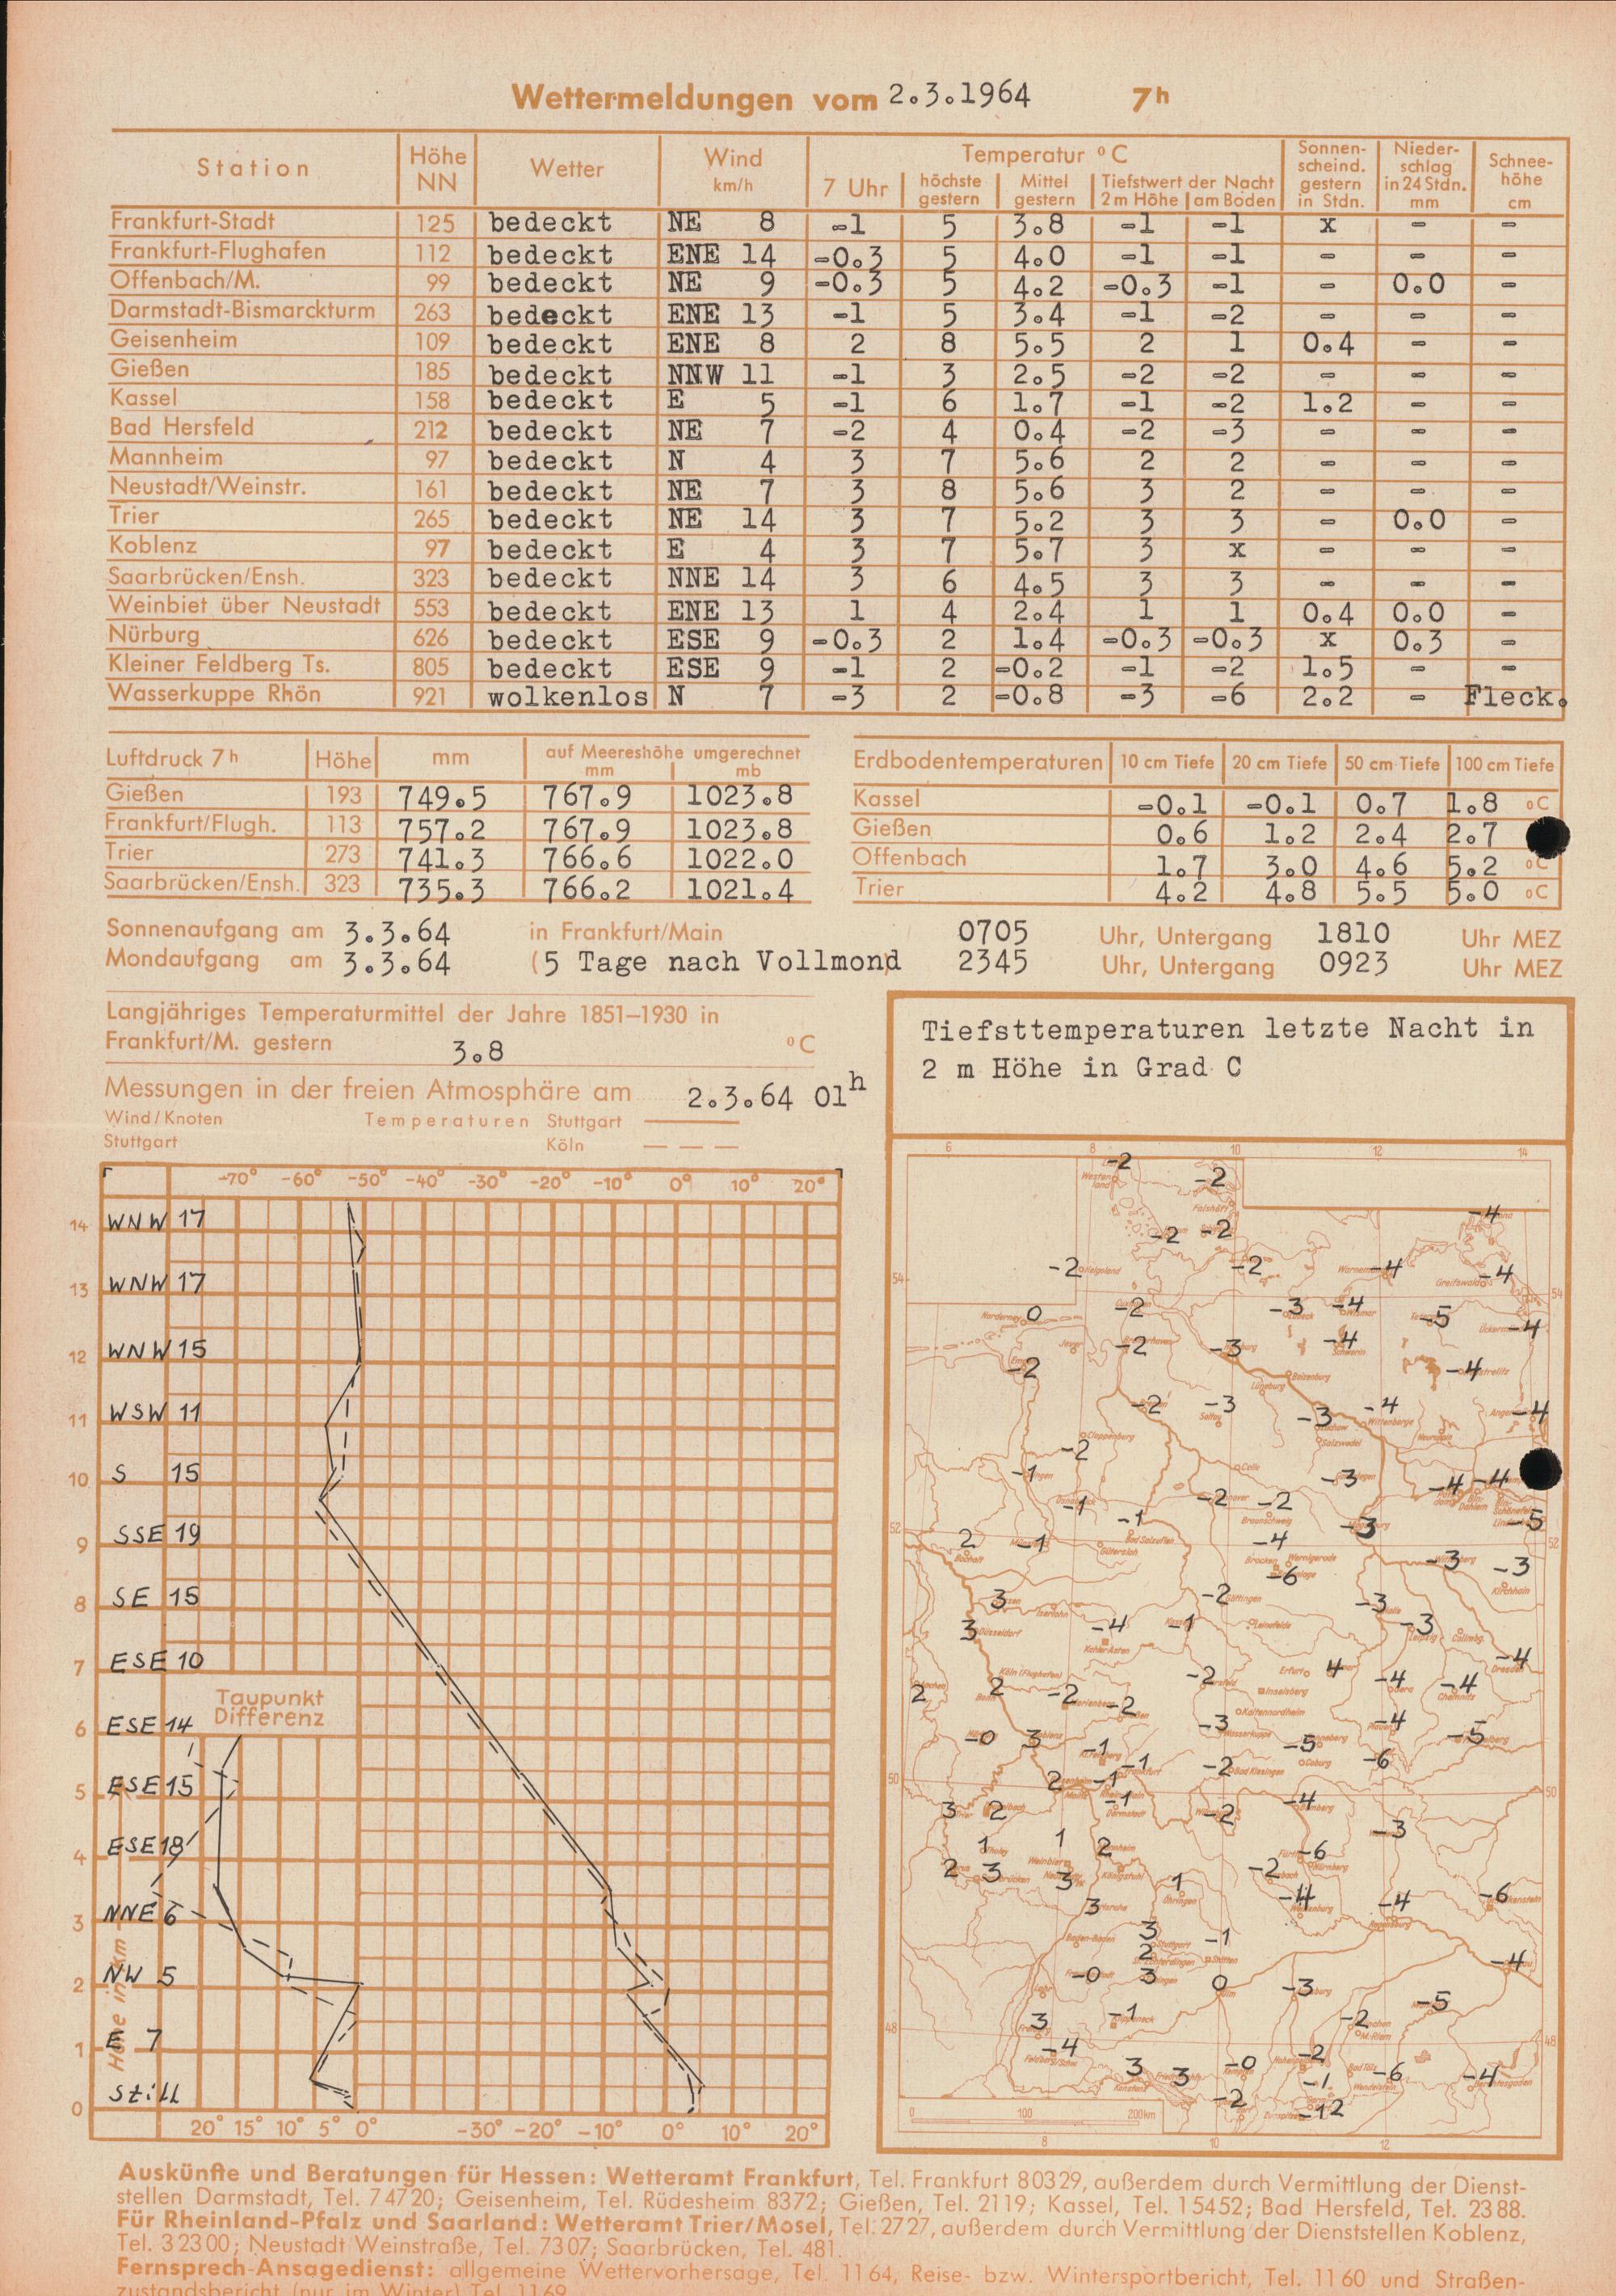 Wettermeldungen vom 2.3.1964 7h
Station Höhe NN Wetter Wind km/h Temperatur °C Sonnenscheind. gestern in Stdn. Niederschlag in 24 Stdn. mm Schneehöhe cm
7 Uhr höchste gestern Mittel gestern Tiefstwert der Nacht 2 m Höhe am Boden
Frankfurt-Stadt 125 bedeckt NE 8 -1 5 3.8 -1 -1 x - -
Frankfurt-Flughafen 112 bedeckt ENE 14 -0.3 5 4.0 -1 -1 - - -
Offenbach/M. 99 bedeckt NE 9 -0.3 5 4.2 -0.3 -1 - 0.0 -
Darmstadt-Bismarckturm 263 bedeckt ENE 13 -1 5 3.4 -1 -2 - - -
Geisenheim 109 bedeckt ENE 8 2 8 5.5 2 1 0.4 - -
Gießen 185 bedeckt NNW 11 -1 3 2.5 -2 -2 - - -
Kassel 158 bedeckt E 5 -1 6 1.7 -1 -2 1.2 - -
Bad Hersfeld 212 bedeckt NE 7 -2 4 0.4 -2 -3 - - -
Mannheim 97 bedeckt N 4 3 7 5.6 2 2 - - -
Neustadt/Weinstr. 161 bedeckt NE 7 3 8 5.6 3 2 - - -
Trier 265 bedeckt NE 14 3 7 5.2 3 3 - 0.0 -
Koblenz 97 bedeckt E 4 3 7 5.7 3 x - - -
Saarbrücken/Ensh. 323 bedeckt NNE 14 3 6 4.5 3 3 - - -
Weinbiet über Neustadt 553 bedeckt ENE 13 1 4 2.4 1 1 0.4 0.0 -
Nürburg 626 bedeckt ESE 9 -0.3 2 1.4 -0.3 -0.3 x 0.3 -
Kleiner Feldberg Ts. 805 bedeckt ESE 9 -1 2 -0.2 -1 -2 1.5 - -
Wasserkuppe Rhön 921 wolkenlos N 7 -3 2 -0.8 -3 -6 2.2 - Fleck.
Luftdruck 7h Höhe mm auf Meereshöhe umgerechnet mm mb
Gießen 193 749.5 767.9 1023.8
Frankfurt/Flugh. 113 757.2 767.9 1023.8
Trier 273 741.3 766.6 1022.0
Saarbrücken/Ensh. 323 735.3 766.2 1021.4
Erdbodentemperaturen 10 cm Tiefe 20 cm Tiefe 50 cm Tiefe 100 cm Tiefe
Kassel -0.1 -0.1 0.7 1.8 °C
Gießen 0.6 1.2 2.4 2.7
Offenbach 1.7 3.0 4.6 5.2 °C
Trier 4.2 4.8 5.5 5.0 °C
Sonnenaufgang am 3.3.64 in Frankfurt/Main 0705 Uhr, Untergang 1810 Uhr MEZ
Mondaufgang am 3.3.64 (5 Tage nach Vollmond) 2345 Uhr, Untergang 0923 Uhr MEZ
Langjähriges Temperaturmittel der Jahre 1851–1930 in
Frankfurt/M. gestern 3.8 °C
Messungen in der freien Atmosphäre am 2.3.64 01h
Wind/Knoten Temperaturen Stuttgart
Stuttgart Köln
-70° -60° -50° -40° -30° -20° -10° 0° 10° 20°
14 WNW 17
13 WNW 17
12 WNW 15
11 WSW 11
10 S 15
9 SSE 19
8 SE 15
7 ESE 10
Taupunkt
Differenz
6 ESE 14
5 ESE 15
4 ESE 18
3 NNE 6
2 NW 5
1 E 7
Höhe in km
0 Still
20° 15° 10° 5° 0° -30° -20° -10° 0° 10° 20°
Tiefsttemperaturen letzte Nacht in
2 m Höhe in Grad C
6 8 10 12 14
-2
-2
-2 -2 -4
54 -2 Helgoland -2 -4 -4 54
Norderney 0 -2 -3 -4 -5 -4
-2 -2 -3 -4 -4
-2 -3 -3 -4 -4
Cloppenburg Salzwedel
-2 -1 Celle -3 -4 -4
-1 -1 -2 -2 Braunschweig -3 -5
52 2 -1 Bad Salzuflen Gütersloh -4 52
Brocken Wernigerode -6 -3 -3 Kirchhain
3 -2 Göttingen -3
3 Düsseldorf -4 Kahler Asten -1 Leinefelde -3
Köln (Flughafen) Erfurt 4 -4 Dresden
2 2 -2 -2 -2 Inselsberg -4 -4 Chemnitz
Kaltennordheim
-0 3 -3 Wasserkuppe -5 -4 -5
-1 -1 -2 Bad Kissingen Coburg -6
50 2 -1 50
3 2 -1 Darmstadt -2 -4 -3
1 1 2 -6 Nürnberg
2 3 3 Königstuhl -2
1 Öhringen -4 -4 -6
3 3 -1
Baden-Baden 2
-0 3 0 -3 -4
48 3 -1 -2 -5 48
-4 -2
3 3 -0 Bad Tölz -6 -4
Konstanz -2 -1 Wendelstein
-12
0 100 200km
8 10 12
Auskünfte und Beratungen für Hessen: Wetteramt Frankfurt, Tel. Frankfurt 80329, außerdem durch Vermittlung der Dienst-
stellen Darmstadt, Tel. 74720; Geisenheim, Tel. Rüdesheim 8372; Gießen, Tel. 2119; Kassel, Tel. 15452; Bad Hersfeld, Tel. 2388.
Für Rheinland-Pfalz und Saarland: Wetteramt Trier/Mosel, Tel. 2727, außerdem durch Vermittlung der Dienststellen Koblenz,
Tel. 32300; Neustadt Weinstraße, Tel. 7307; Saarbrücken, Tel. 481.
Fernsprech-Ansagedienst: allgemeine Wettervorhersage, Tel. 1164, Reise- bzw. Wintersportbericht, Tel. 1160 und Straßen-
zustandsbericht (nur im Winter) Tel. 1169